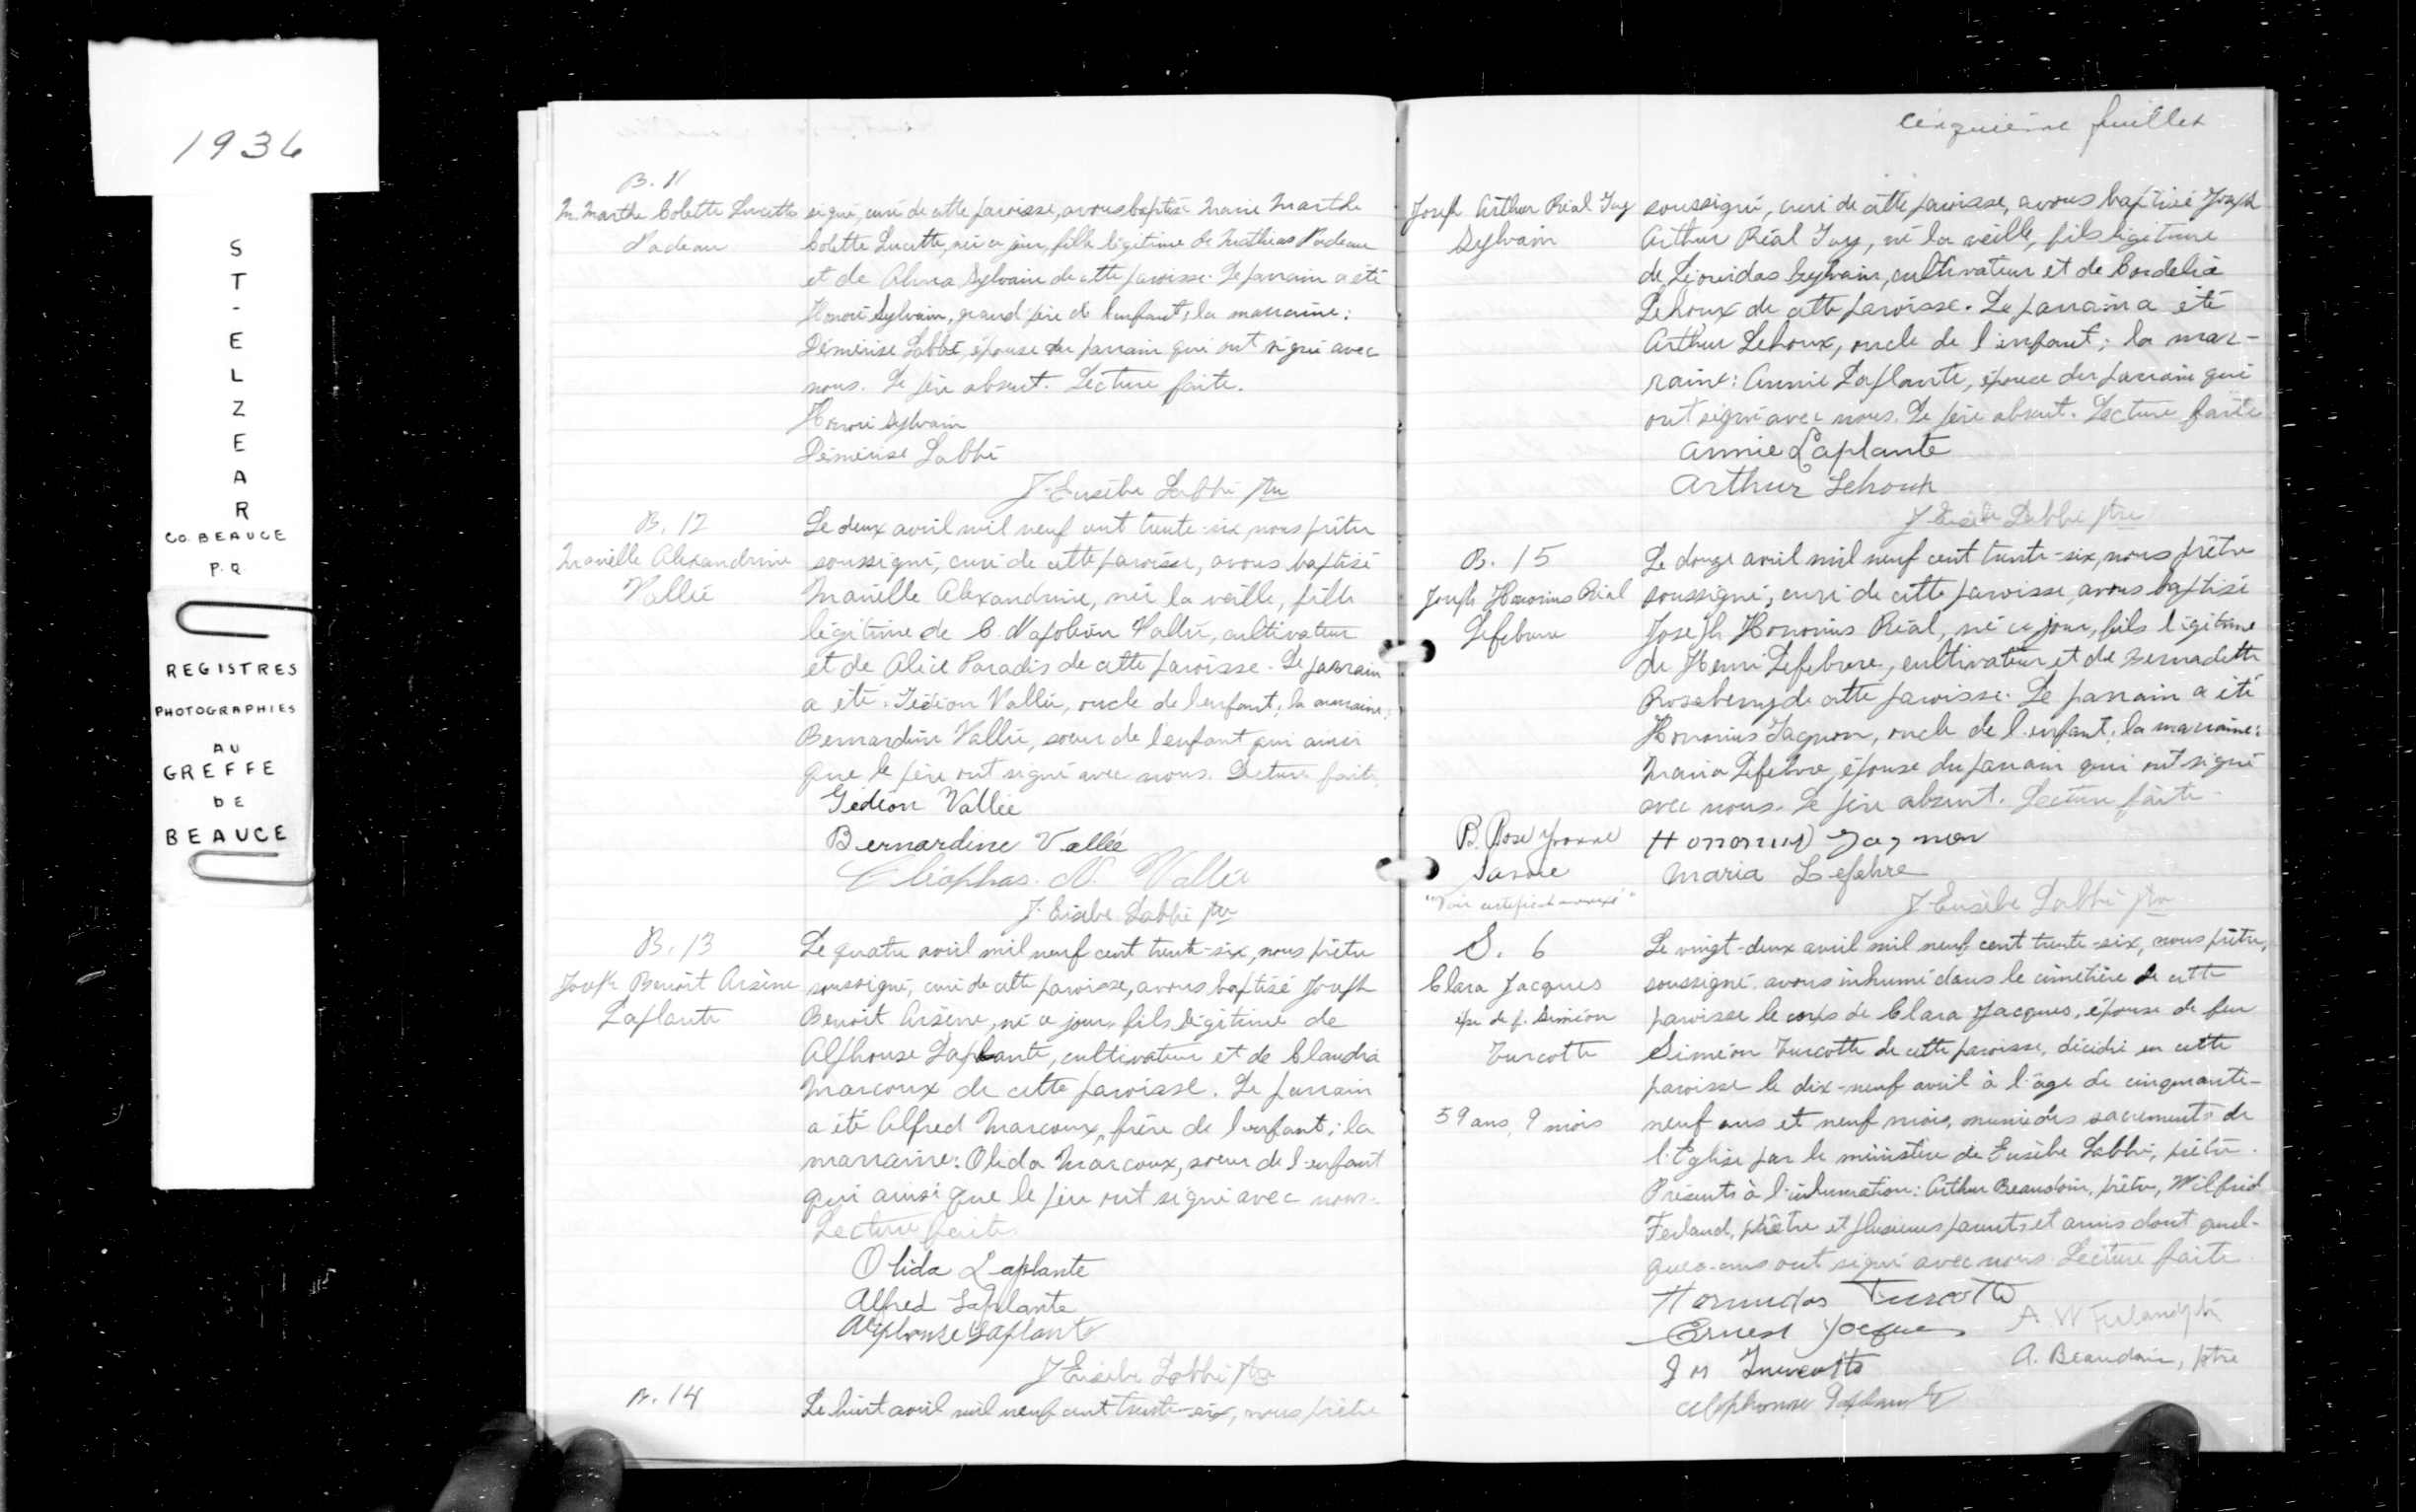 1936
ST-ELZEAR
CO. BEAUCE
P.Q
REGISTRES
PHOTOGRAPHIES
AU
GREFFE
DE
BEAUCE
B. 11
M. Marthe Colette Lucette
Nadeau
signé, curé de cette paroisse, avons baptisé Marie Marthe
Colette Lucette, née ce jour, fille légitime de Mathias Nadeau
et de Alma Sylvain de cette paroisse. Le parrain a été
Honoré Sylvain, grand'père de l'enfant; la marraine:
Démérise Labbé, épouse du parrain qui ont signé avec
nous. Le père absent. Lecture faite.
Honoré Sylvain
Démérise Labbé
J-Eusèbe Labbé ptre
B. 12
Marielle Alexandrine
Vallée
Le deux avril mil neuf cent trente-six, nous prêtre
soussigné, curé de cette paroisse, avons baptisé
Marielle Alexandrine, née la veille, fille
légitime de C. Napoléon Vallée, cultivateur
et de Alice Paradis de cette paroisse. Le parrain
a été: Gédéon Vallée, oncle de l'enfant; la marraine:
Bernardine Vallée, soeur de l'enfant qui ainsi
que le père ont signé avec nous. Lecture faite.
Gédéon Vallée
Bernardine Vallée
Cléophas. N. Vallée
J. Eusèbe Labbé ptre
B. 13
Joseph Benoit Arsène
Laplante
Le quatre avril mil neuf cent trente-six, nous prêtre
soussigné, curé de cette paroisse, avons baptisé Joseph
Benoit Arsène, né ce jour, fils légitime de
Alphonse Laplante, cultivateur et de Claudia
Marcoux de cette paroisse. Le parrain
a été Alfred Marcoux, frère de l'enfant; la
marraine: Olida Marcoux, soeur de l'enfant
qui ainsi que le père ont signé avec nous.
Lecture faite.
Olida Laplante
Alfred Laplante
Alphonse Laplante
J Eusèbe Labbé ptre
B. 14
Le huit avril mil neuf cent trente-six, nous prêtre
cinquième feuillet
Joseph Arthur Réal Guy
Sylvain
soussigné, curé de cette paroisse, avons baptisé Joseph
Arthur Réal Guy, né la veille, fils légitime
de Léonidas Sylvain, cultivateur et de Cordélia
Lehoux de cette paroisse. Le parrain a été
Arthur Lehoux, oncle de l'enfant; la mar-
raine: Annie Laplante, épouse du parrain qui
ont signé avec nous. Le père absent. Lecture faite
Annie Laplante
Arthur Lehoux
J Eusèbe Labbé ptre
B. 15
Joseph Honorius Réal
Lefebvre
Le douze avril mil neuf cent trente-six, nous prêtre
soussigné, curé de cette paroisse, avons baptisé
Joseph Honorius Réal, né ce jour, fils légitime
de Henri Lefebvre, cultivateur et de Bernadette
Roseberry de cette paroisse. Le parrain a été
Honorius Gagnon, oncle de l'enfant; la marraine:
Maria Lefebvre, épouse du parrain qui ont signé
avec nous. Le père absent. Lecture faite.
B. Rose Yvonne
Savoie
"Voir certificat annexé"
Honorius Gagnon
Maria Lefebvre
J Eusèbe Labbé ptre
S. 6
Clara Jacques
épse de f. Siméon
Turcotte
59 ans, 9 mois
Le vingt-deux avril mil neuf cent trente-six, nous prêtre,
soussigné avons inhumé dans le cimetière de cette
paroisse le corps de Clara Jacques, épouse de feu
Siméon Turcotte de cette paroisse, décédé en cette
paroisse le dix-neuf avril à l'âge de cinquante-
neuf ans et neuf mois, munie des sacrements de
l'Eglise par le ministère de Eusèbe Labbé, prêtre.
Présents à l'inhumation: Arthur Beaudoin, prêtre, Wilfrid
Ferland, prêtre et plusieurs parents et amis dont quel-
ques-uns ont signé avec nous. Lecture faite.
Hormidas Turcotte
Ernest Jacques
A W Ferland ptre
J M Turcotte
A. Beaudoin, ptre
Alphonse Laplante